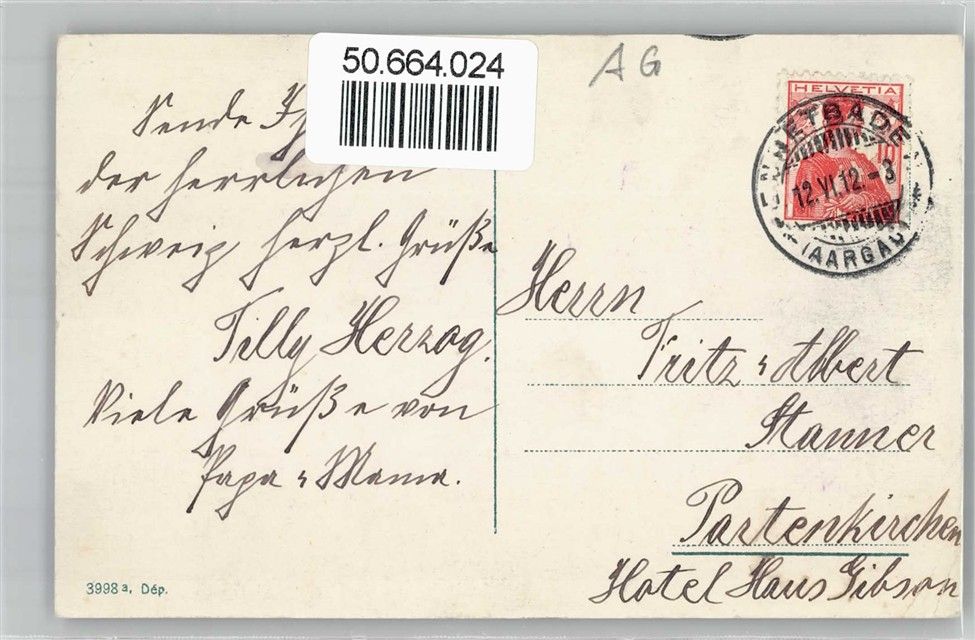 50.664.024
AG
HELVETIA
10
12.VI.12.-8
(AARGAU)
Sende
der herrlichen
Schweiz herzl. Grüße
Tilly Herzog.
Viele Grüße von
Papa & Mama.
Herrn
Fritz & Albert
Stanner
Partenkirchen
Hotel Haus Gibson
3998 a, Dép.